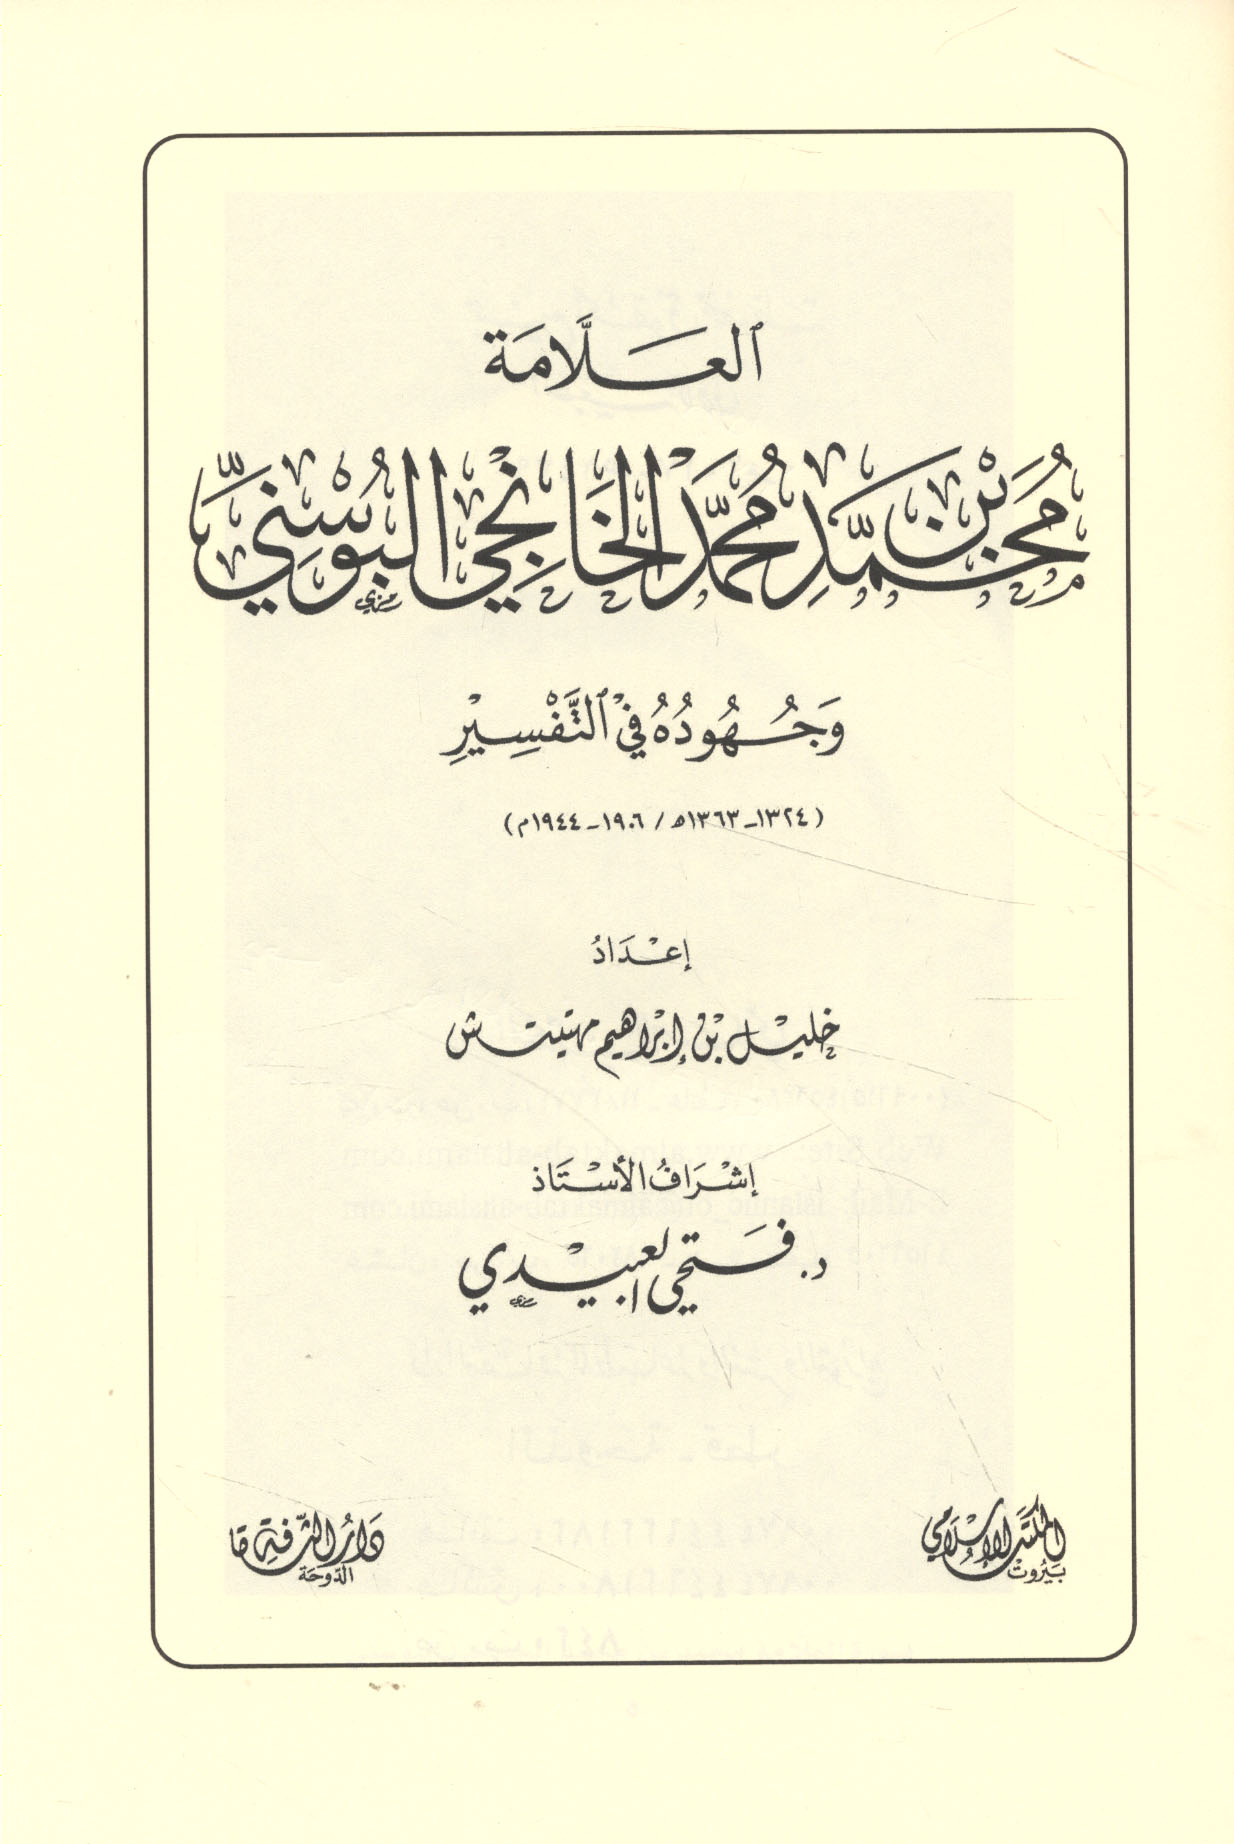 العَلَّامَة
مُحَمَّد بْن مُحَمَّد الخَانْجِي البُوسْنِيّ
وَجُهُودُهُ فِي التَّفْسِيْرِ
(١٣٢٤-١٣٦٣ه / ١٩٠٦-١٩٤٤م)
إعْدَادُ
خليل بن إبراهيم مهتيتش
إشْرَافُ الأسْتَاذ
د. فَتحي العبيْدي
المكتب الإسلامي
بَيْروتْ
دَارُ الثَّقافَة
الدَّوحَة